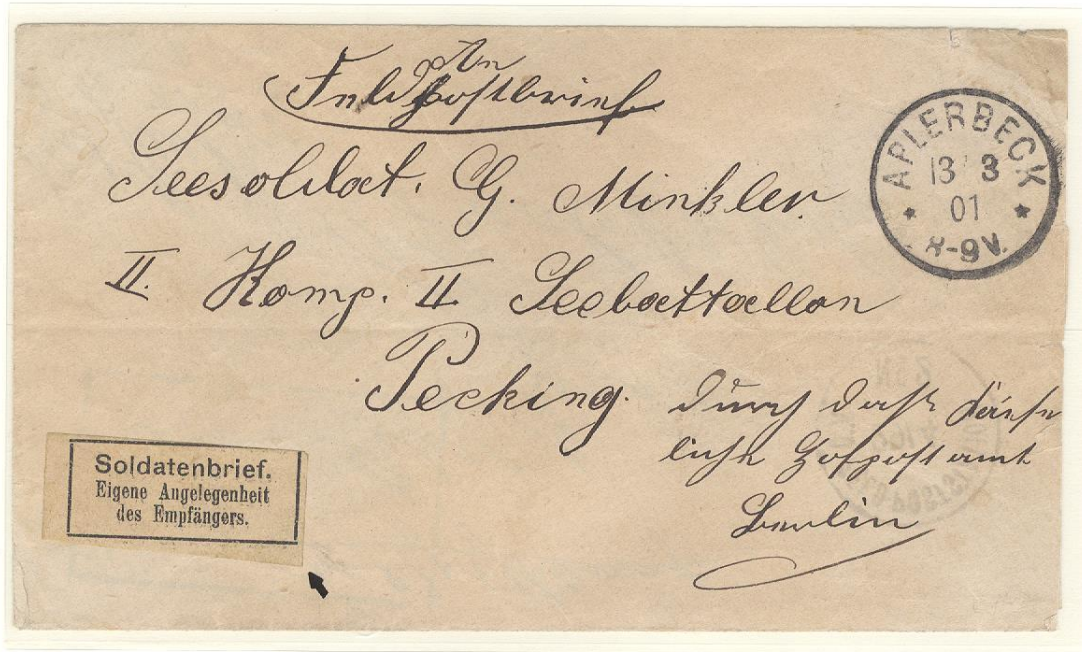 An
Feldpostbrief
Seesoldat. G. Minkler.
II. Komp. II Seebattallon
Pecking. durch das Kaiser
liche Hofpostamt
Berlin
APLERBECK
13 3
01
8-9V.
Soldatenbrief.
Eigene Angelegenheit
des Empfängers.